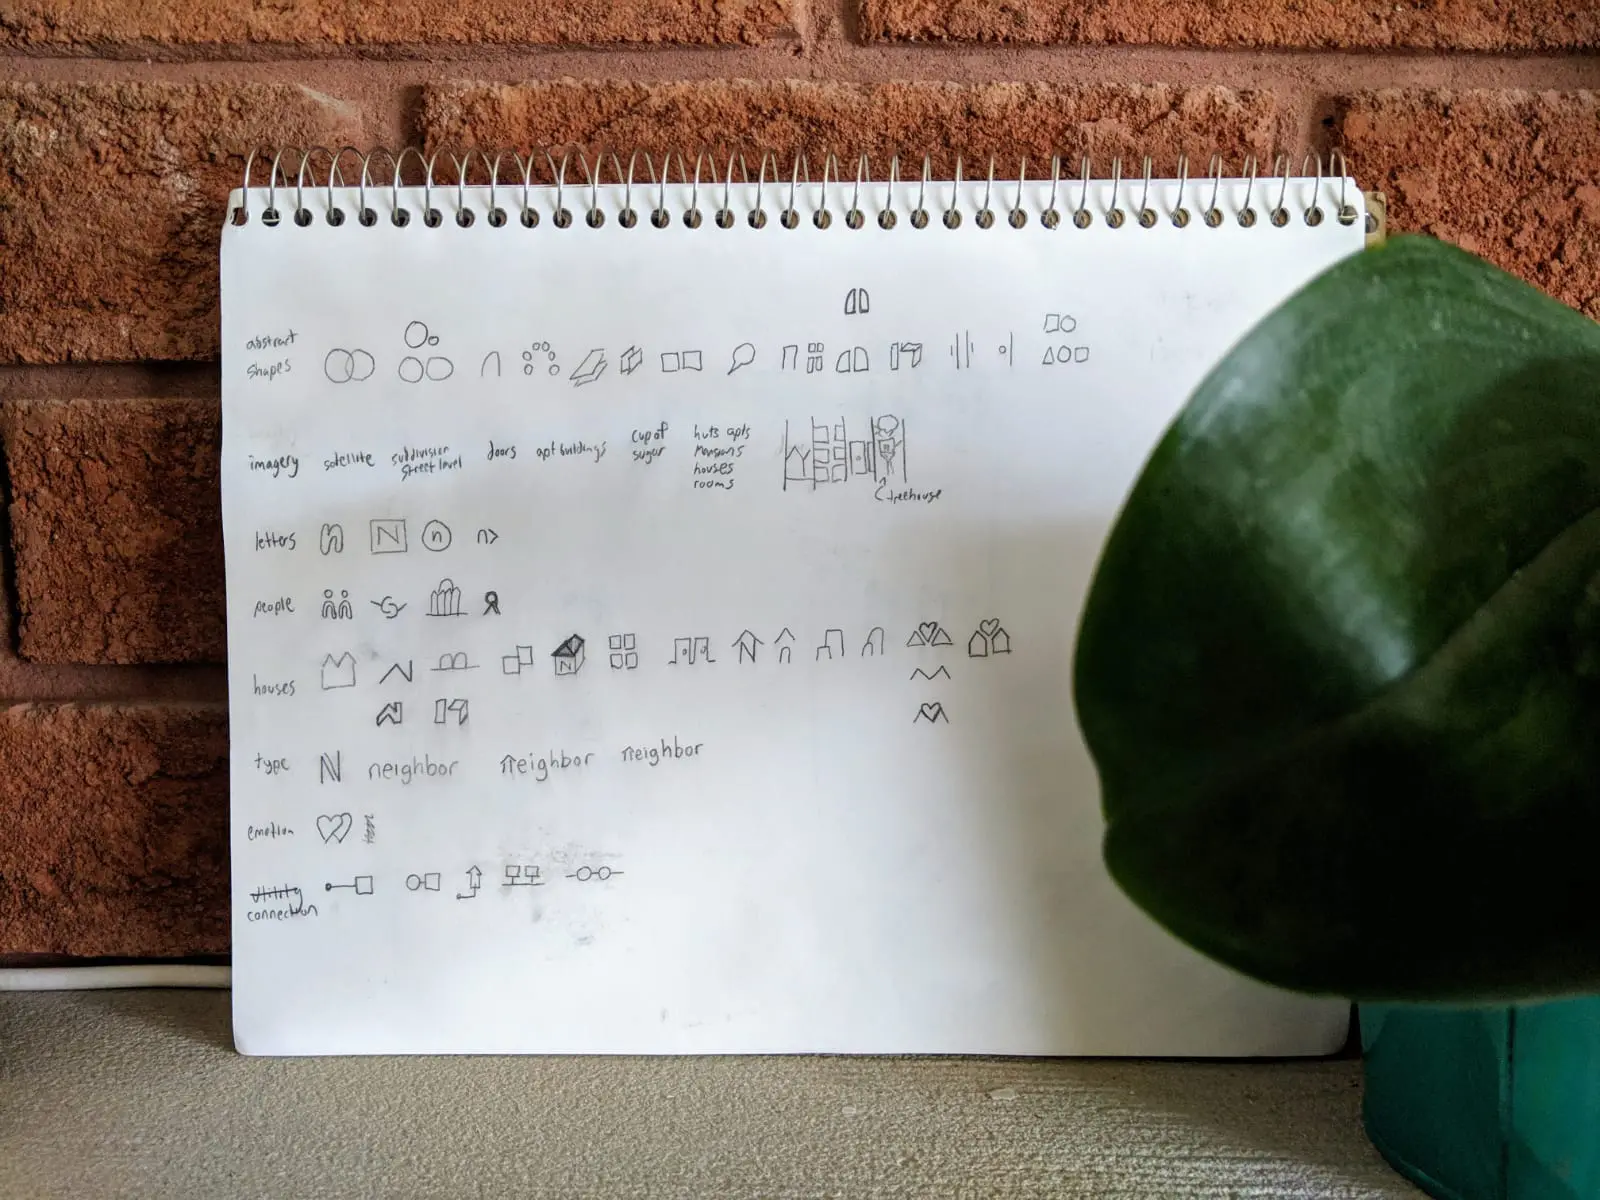 abstract
shapes
imagery satellite subdivision street level doors apt buildings cup of sugar huts apts mansions houses rooms
treehouse
letters n N n n>
people
houses N
type N neighbor neighbor neighbor
emotion
utility
connection